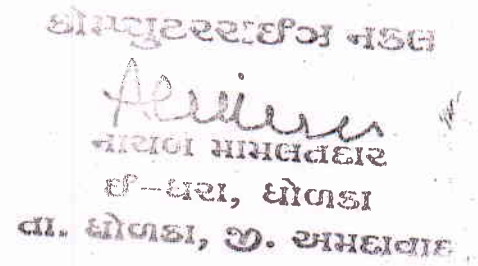 કોમ્પ્યુટરરાઈઝ નકલ
નાયબ મામલતદાર
ઈ-ધરા, ધોળકા
તા. ધોળકા, જી. અમદાવાદ